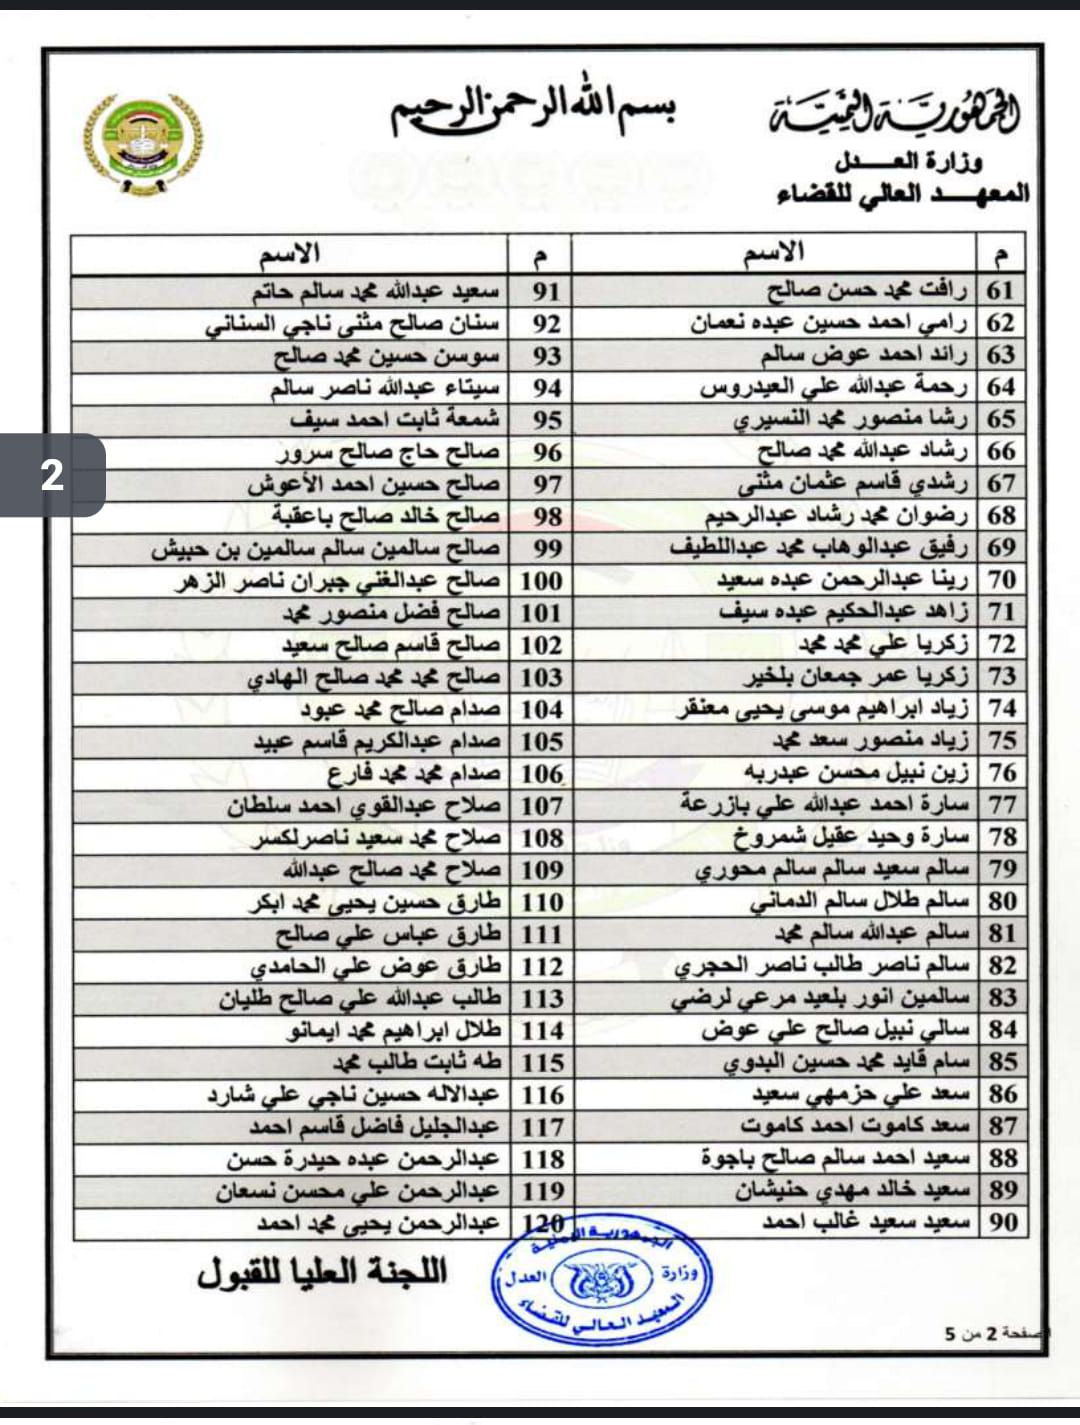 الجمهورية اليمنية
وزارة العـــدل
المعهـــد العالي للقضاء
بسم الله الرحمن الرحيم
م الاسم م الاسم
61 رافت محمد حسن صالح 91 سعيد عبدالله محمد سالم حاتم
62 رامي احمد حسين عبده نعمان 92 سنان صالح مثنى ناجي السناني
63 رائد احمد عوض سالم 93 سوسن حسين محمد صالح
64 رحمة عبدالله علي العيدروس 94 سيتاء عبدالله ناصر سالم
65 رشا منصور محمد النسيري 95 شمعة ثابت احمد سيف
66 رشاد عبدالله محمد صالح 96 صالح حاج صالح سرور
67 رشدي قاسم عثمان مثنى 97 صالح حسين احمد الأعوش
68 رضوان محمد رشاد عبدالرحيم 98 صالح خالد صالح باعقبة
69 رفيق عبدالوهاب محمد عبداللطيف 99 صالح سالمين سالم سالمين بن حبيش
70 رينا عبدالرحمن عبده سعيد 100 صالح عبدالغني جبران ناصر الزهر
71 زاهد عبدالحكيم عبده سيف 101 صالح فضل منصور محمد
72 زكريا علي محمد محمد 102 صالح قاسم صالح سعيد
73 زكريا عمر جمعان بلخير 103 صالح محمد محمد صالح الهادي
74 زياد ابراهيم موسى يحيى معنقر 104 صدام صالح محمد عبود
75 زياد منصور سعد محمد 105 صدام عبدالكريم قاسم عبيد
76 زين نبيل محسن عبدربه 106 صدام محمد محمد فارع
77 سارة احمد عبدالله علي بازرعة 107 صلاح عبدالقوي احمد سلطان
78 سارة وحيد عقيل شمروخ 108 صلاح محمد سعيد ناصرلكسر
79 سالم سعيد سالم سالم محوري 109 صلاح محمد صالح عبدالله
80 سالم طلال سالم الدماني 110 طارق حسين يحيى محمد ابكر
81 سالم عبدالله سالم محمد 111 طارق عباس علي صالح
82 سالم ناصر طالب ناصر الحجري 112 طارق عوض علي الحامدي
83 سالمين انور بلعيد مرعي لرضي 113 طالب عبدالله علي صالح طليان
84 سالي نبيل صالح علي عوض 114 طلال ابراهيم محمد ايمانو
85 سام قايد محمد حسين البدوي 115 طه ثابت طالب محمد
86 سعد علي حزمهي سعيد 116 عبدالاله حسين ناجي علي شارد
87 سعد كاموت احمد كاموت 117 عبدالجليل فاضل قاسم احمد
88 سعيد احمد سالم صالح باجوة 118 عبدالرحمن عبده حيدرة حسن
89 سعيد خالد مهدي حنيشان 119 عبدالرحمن علي محسن نسعان
90 سعيد سعيد غالب احمد 120 عبدالرحمن يحيى محمد احمد
2
اللجنة العليا للقبول
الجمهورية اليمنية
وزارة العدل
المعهد العالي للقضاء
صفحة 2 من 5